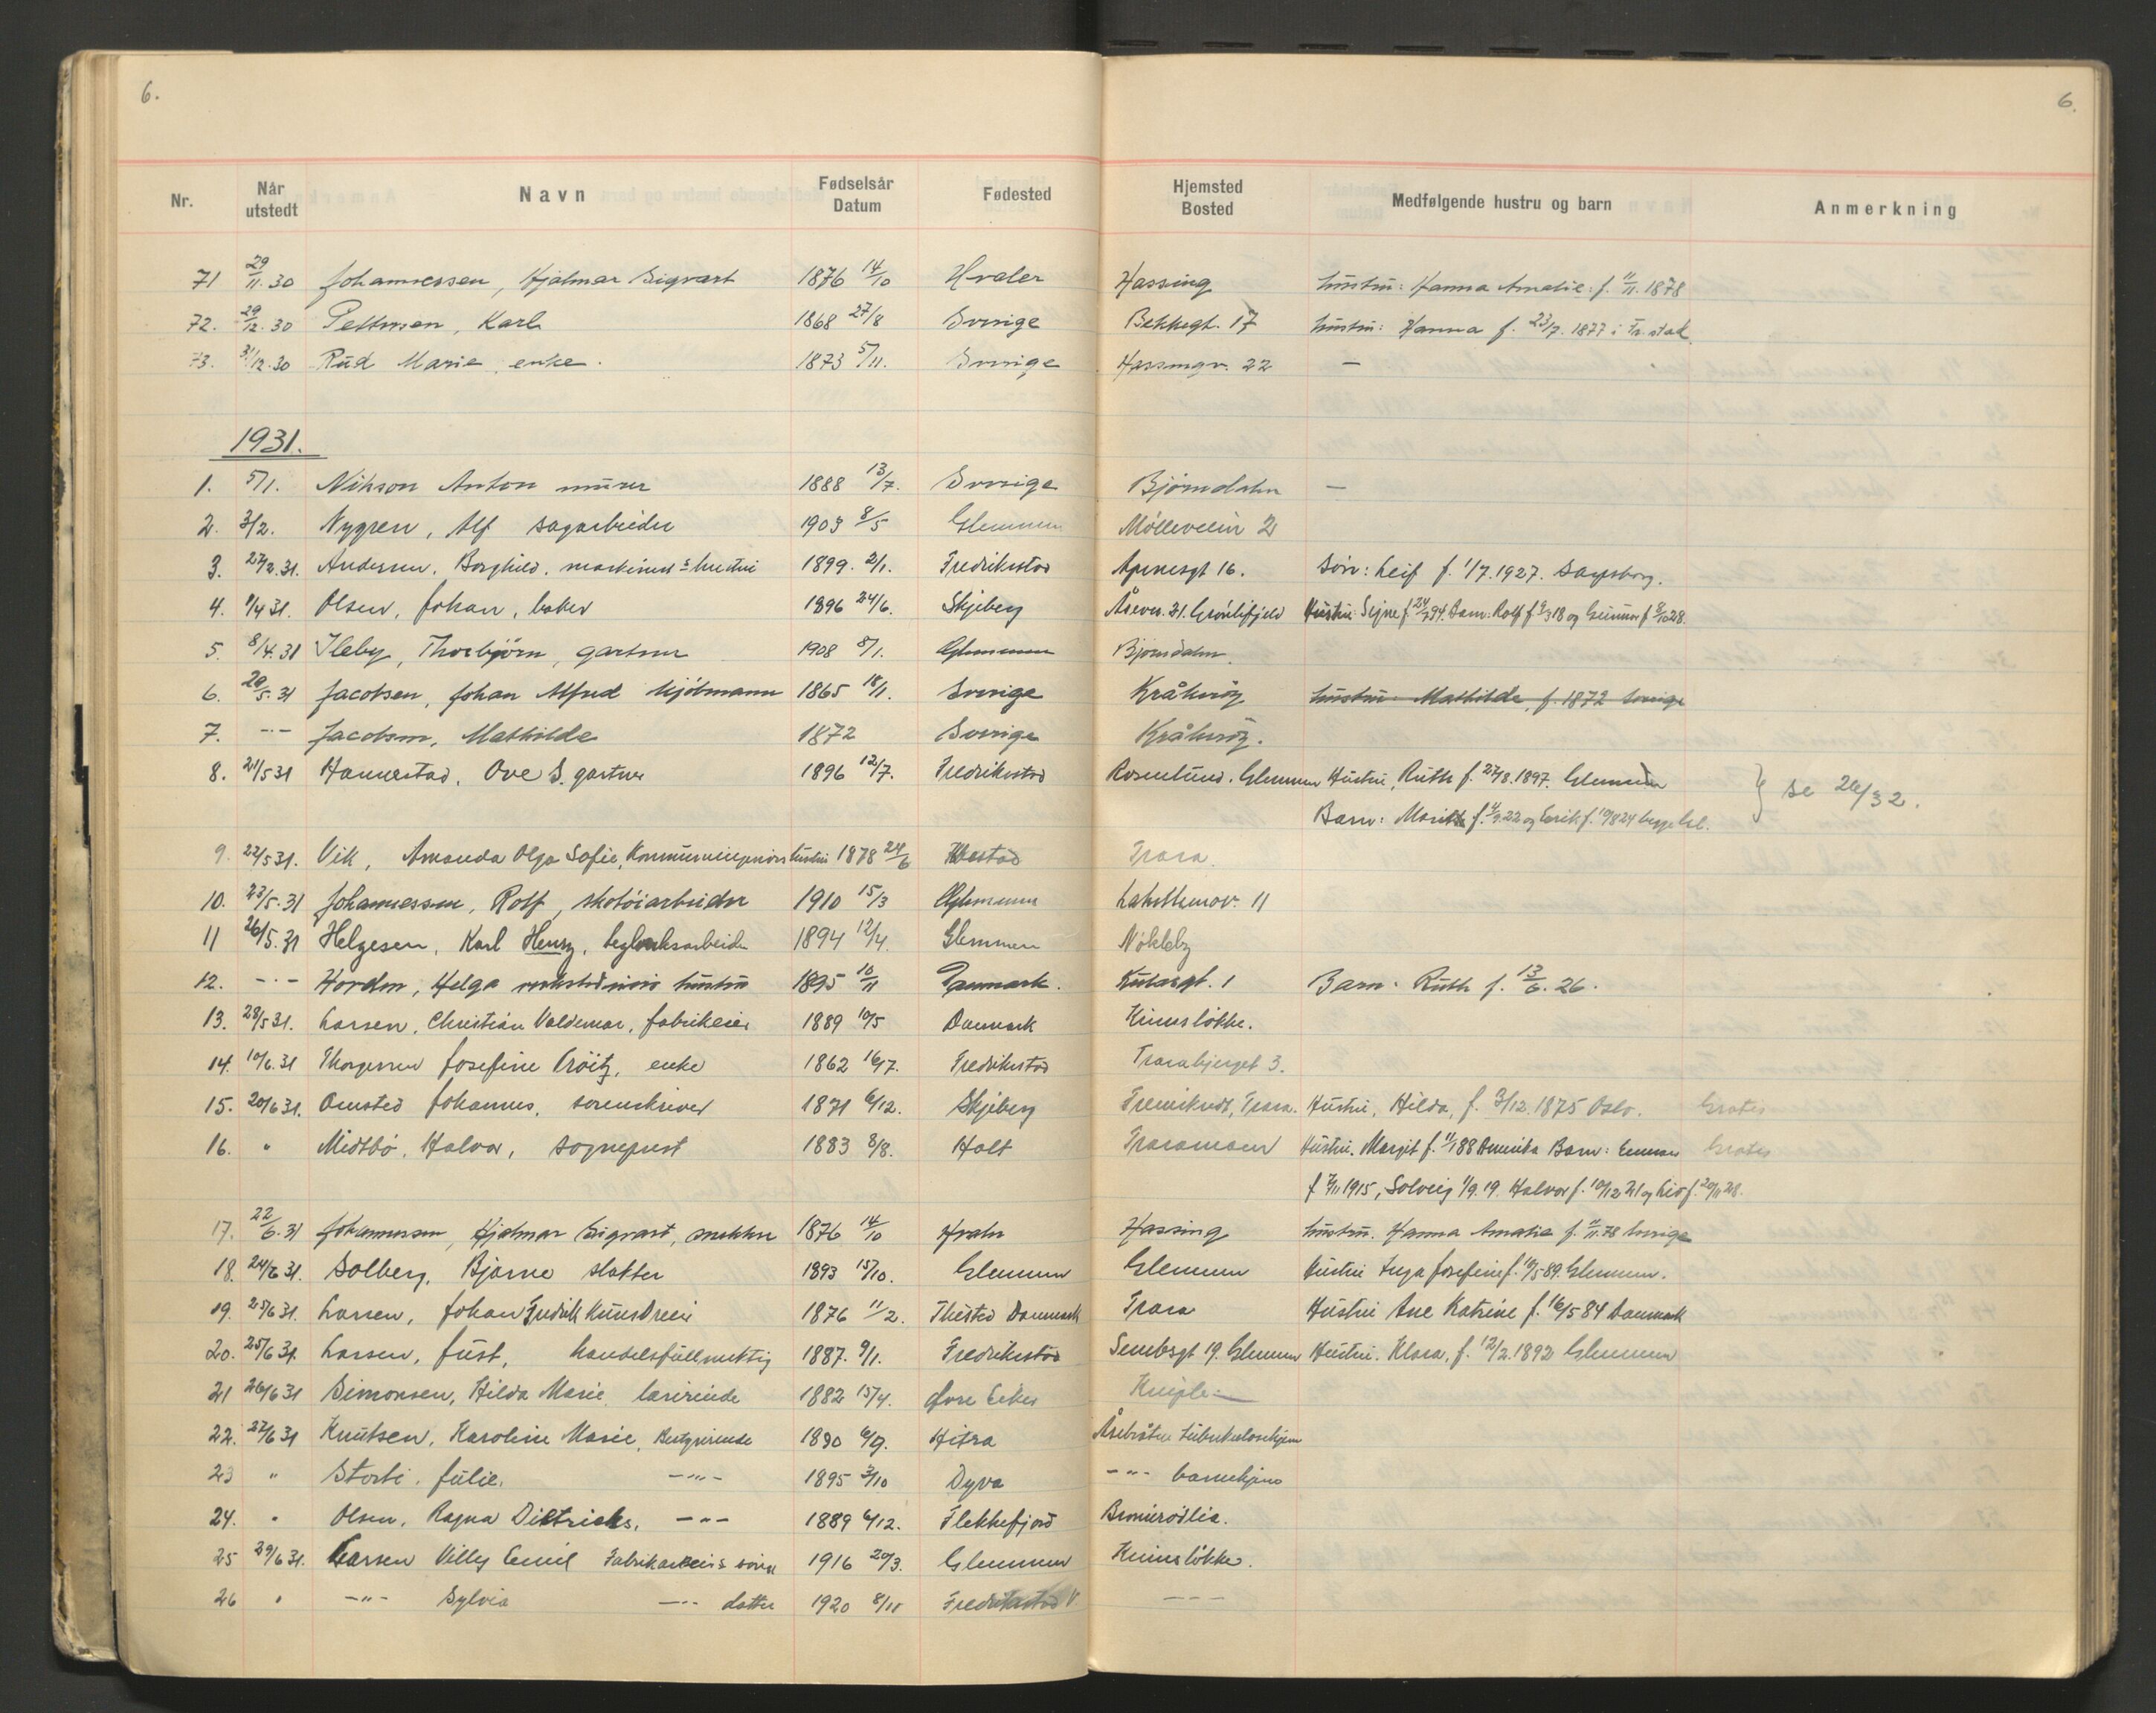 6.
6.
Nr. Når utstedt Navn Fødselsår Datum Fødested Hjemsted Bosted Medfølgende hustru og barn Anmerkning
71 29/11.30 Johannessen, Hjalmar Sigvart 1876 14/10 Hvaler Hassing hustru: Hanna Amalie: f. 11/11.1878
72. 29/12.30 Pettersen, Karl 1868 27/8 Sverige Bekkegt. 17 hustru: Hanna f. 23/7.1877 i Fr.stad
73. 31/12.30 Rud Marie, enke. 1873 5/11. Sverige Hassingv. 22 —
1931.
1. 5/1. Nilsson Anton murer 1888 13/7. Sverige Bjørndalen —
2. 3/2. Nygren, Alf sagarbeider 1903 8/5 Glemmen Mølleveien 2
3. 27/2.31. Andersen, Borghild, maskinists hustru 1899. 2/1. Fredrikstad Apenesgt 16. Søn: Leif f. 1/7.1927. Sarpsborg.
4. 1/4 31. Olsen, Johan, baker 1896 24/6. Skjeberg Åsevn. 31. Grønlifjeld Hustru: Signe f. 24/7 94. Barn: Rolf f. 9/3 18 og Gunnar f 8/10 28.
5. 8/4.31 Ileby, Thorbjørn, gartner 1908 8/1. Glemmen Bjørndalen.
6. 20/5.31 Jacobsen, Johan Alfred skjøtmann 1865 18/11. Sverige Kråkerøy hustru: Mathilde, f. 1872 Sverige
7. -"- Jacobsen, Mathilde 1872 Sverige Kråkerøy.
8. 21/5 31 Hannestad, Ove S. gartner 1896 12/7. Fredrikstad Rosenlund. Glemmen Hustru, Ruth f. 27/8.1897. Glemmen } se 26/32.
Barn: f. 4/9.22 og Erik f. 10/8 24 begge Gl.
9. 22/5 31. Vik, Amanda Olga Sofie, Kommuneingeniørs hustru 1878 24/6 Trara.
10. 23/5.31 Johannessen, Rolf, skotøiarbeider 1910 15/3 Glemmen Lahellemov. 11
11 26/5.31 Helgesen, Karl Henry, teglverksarbeider 1894 12/4. Glemmen Nøkleby
12. -"- Horden, Helga hustru 1895 10/11 Danmark. 1 Barn: Ruth f. 13/6.26.
13. 28/5 31. Larsen, Christian Valdemar, fabrikeier 1889 10/5 Danmark Kiærsløkke.
14. 10/6.31 Thorgersen Josefine Prøitz, enke 1862 16/7. Fredrikstad Trarabjerget 3.
15. 20/6 31. Omsted Johannes, sorenskriver 1871 6/12. Skjeberg Trara. Hustru, Hilda, f. 3/12.1875 Oslo. Gratis
16. " Midtbø, Halvor, sogneprest 1883 8/8. Holt Traramoen Hustru. Margit f. 11/1 88 Amerika Barn: Gratis
f 7/11 1915, Solveig 1/9.19. Halvor f. 10/12 21 og Liv f. 20/11 28.
17. 22/6.31 Johannessen, Hjalmar Sigvart, snekker 1876 14/10 Hvaler Hassing hustru. Hanna Amalie f. 11/11.78 Sverige
18. 24/6 31. Solberg, Bjarne slakter 1893 15/10. Glemmen Glemmen Hustru Inga Josefine f. 10/5 89. Glemmen.
19. 25/6 31. Larsen, Johan Fredrik Kunstdreier 1876 11/2. Thisted Danmark Trara Hustru Ane Katrine f. 16/5 84 Danmark
20. 25/6 31. Larsen, Just, handelsfullmektig 1887. 9/1. Fredrikstad 19. Glemmen Hustru. Klara, f. 12/2.1892 Glemmen
21 26/6 31 Simonsen, Hilda Marie, lærerinde 1882 15/4. Øvre Eiker Kniple
22. 27/6 31 Knutsen, Karoline Marie, Bestyrerinde 1890 6/9. Hitra Åsebråten tuberkulosehjem
23 " Storli, Julie. -"- 1895 3/10 Dyva -"- barnehjem
24. " Olsen, Ragna Dietrichs, -"- 1889 6/12. Flekkefjord
25 29/6 31. Larsen Villy Emil Fabrikeiers sønn 1916 20/3. Glemmen Kiærsløkke.
26 " -"- Sylvia -"- datter 1920 8/11 Fredrikstad V ---